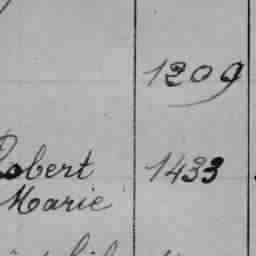 1209
Robert 1433
Marie